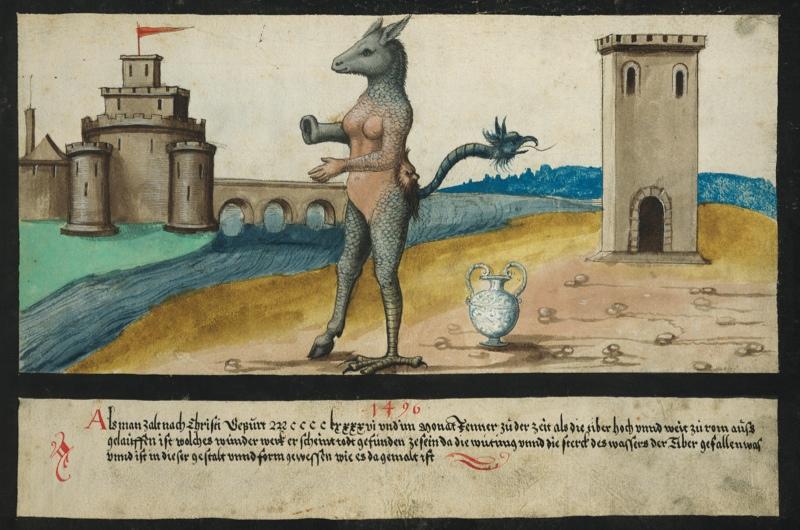 1496
Als man zalt nach Christi Gepürt M c c c c lxxxxvi vnnd im Monat Jenner zů der zeit als die tiber hoch vnnd weit zů rom auß
geläuffen ist wölches wunder werk erscheint todt gefunden ze sein da die wüting vnnd die sterck des wassers der Tiber gefallen was
vnnd ist in diser gestalt vnnd form gewessen wie es da gemalt ist